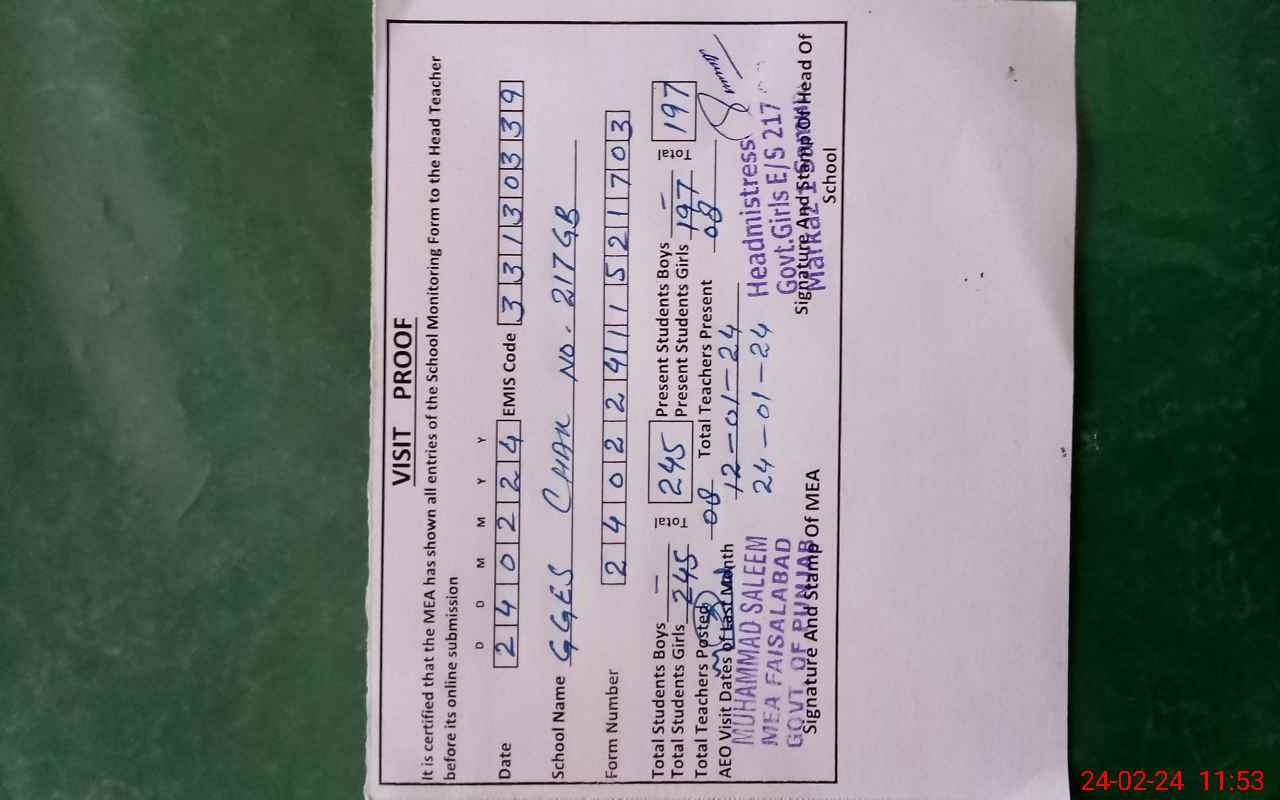 VISIT PROOF
It is certified that the MEA has shown all entries of the School Monitoring Form to the Head Teacher
before its online submission
D D M M Y Y
Date 240224 EMIS Code 33130339
School Name GGES CHAK NO. 217 GB
Form Number 24022411521703
Total Students Boys — Total 245 Present Students Boys — Total 197
Total Students Girls 245 Present Students Girls 197
Total Teachers Posted 08 Total Teachers Present 08
AEO Visit Dates of Last Month 12-01-24
24-01-24
MUHAMMAD SALEEM
MEA FAISALABAD
GOVT OF PUNJAB
Signature And Stamp Of MEA
Headmistress
Govt.Girls E/S 217
Markaz 1
Signature And Stamp Of Head Of
School
24-02-24 11:53